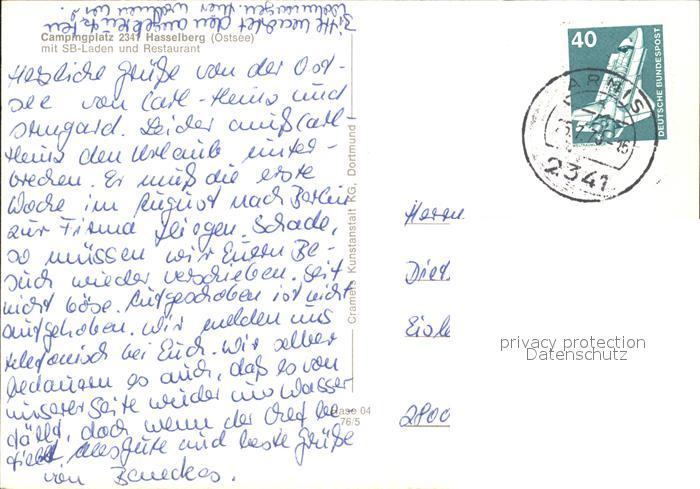 Bitte beachtet den angekreuzten
Wohnwagen. Hier wohnen wir.
Campingplatz 2341 Hasselberg (Ostsee)
mit SB-Laden und Restaurant
Herzliche Grüße von der Ost-
see von Carl-Heinz und
Irmgard. Leider muß Carl-
Heinz den Urlaub unter-
brechen. Er muß die erste
Woche im August nach Berlin
zur Firma fliegen. Schade,
so müssen wir Euern Be-
such wieder verschieben. Seit
nicht böse. Aufgeschoben ist nicht
aufgehoben. Wir melden uns
telefonisch bei Euch. Wir selber
bedauern es auch, daß es von
unserer Seite wieder ins Wasser
fällt, doch wenn der Chef be-
fielt. Alles Gute und beste Grüße
von Beneckes.
Cramers Kunstanstalt KG, Dortmund
Hase 04
76/5
40
DEUTSCHE BUNDESPOST
2341
Herrn
Diet
Eisle
2800
privacy protection
Datenschutz